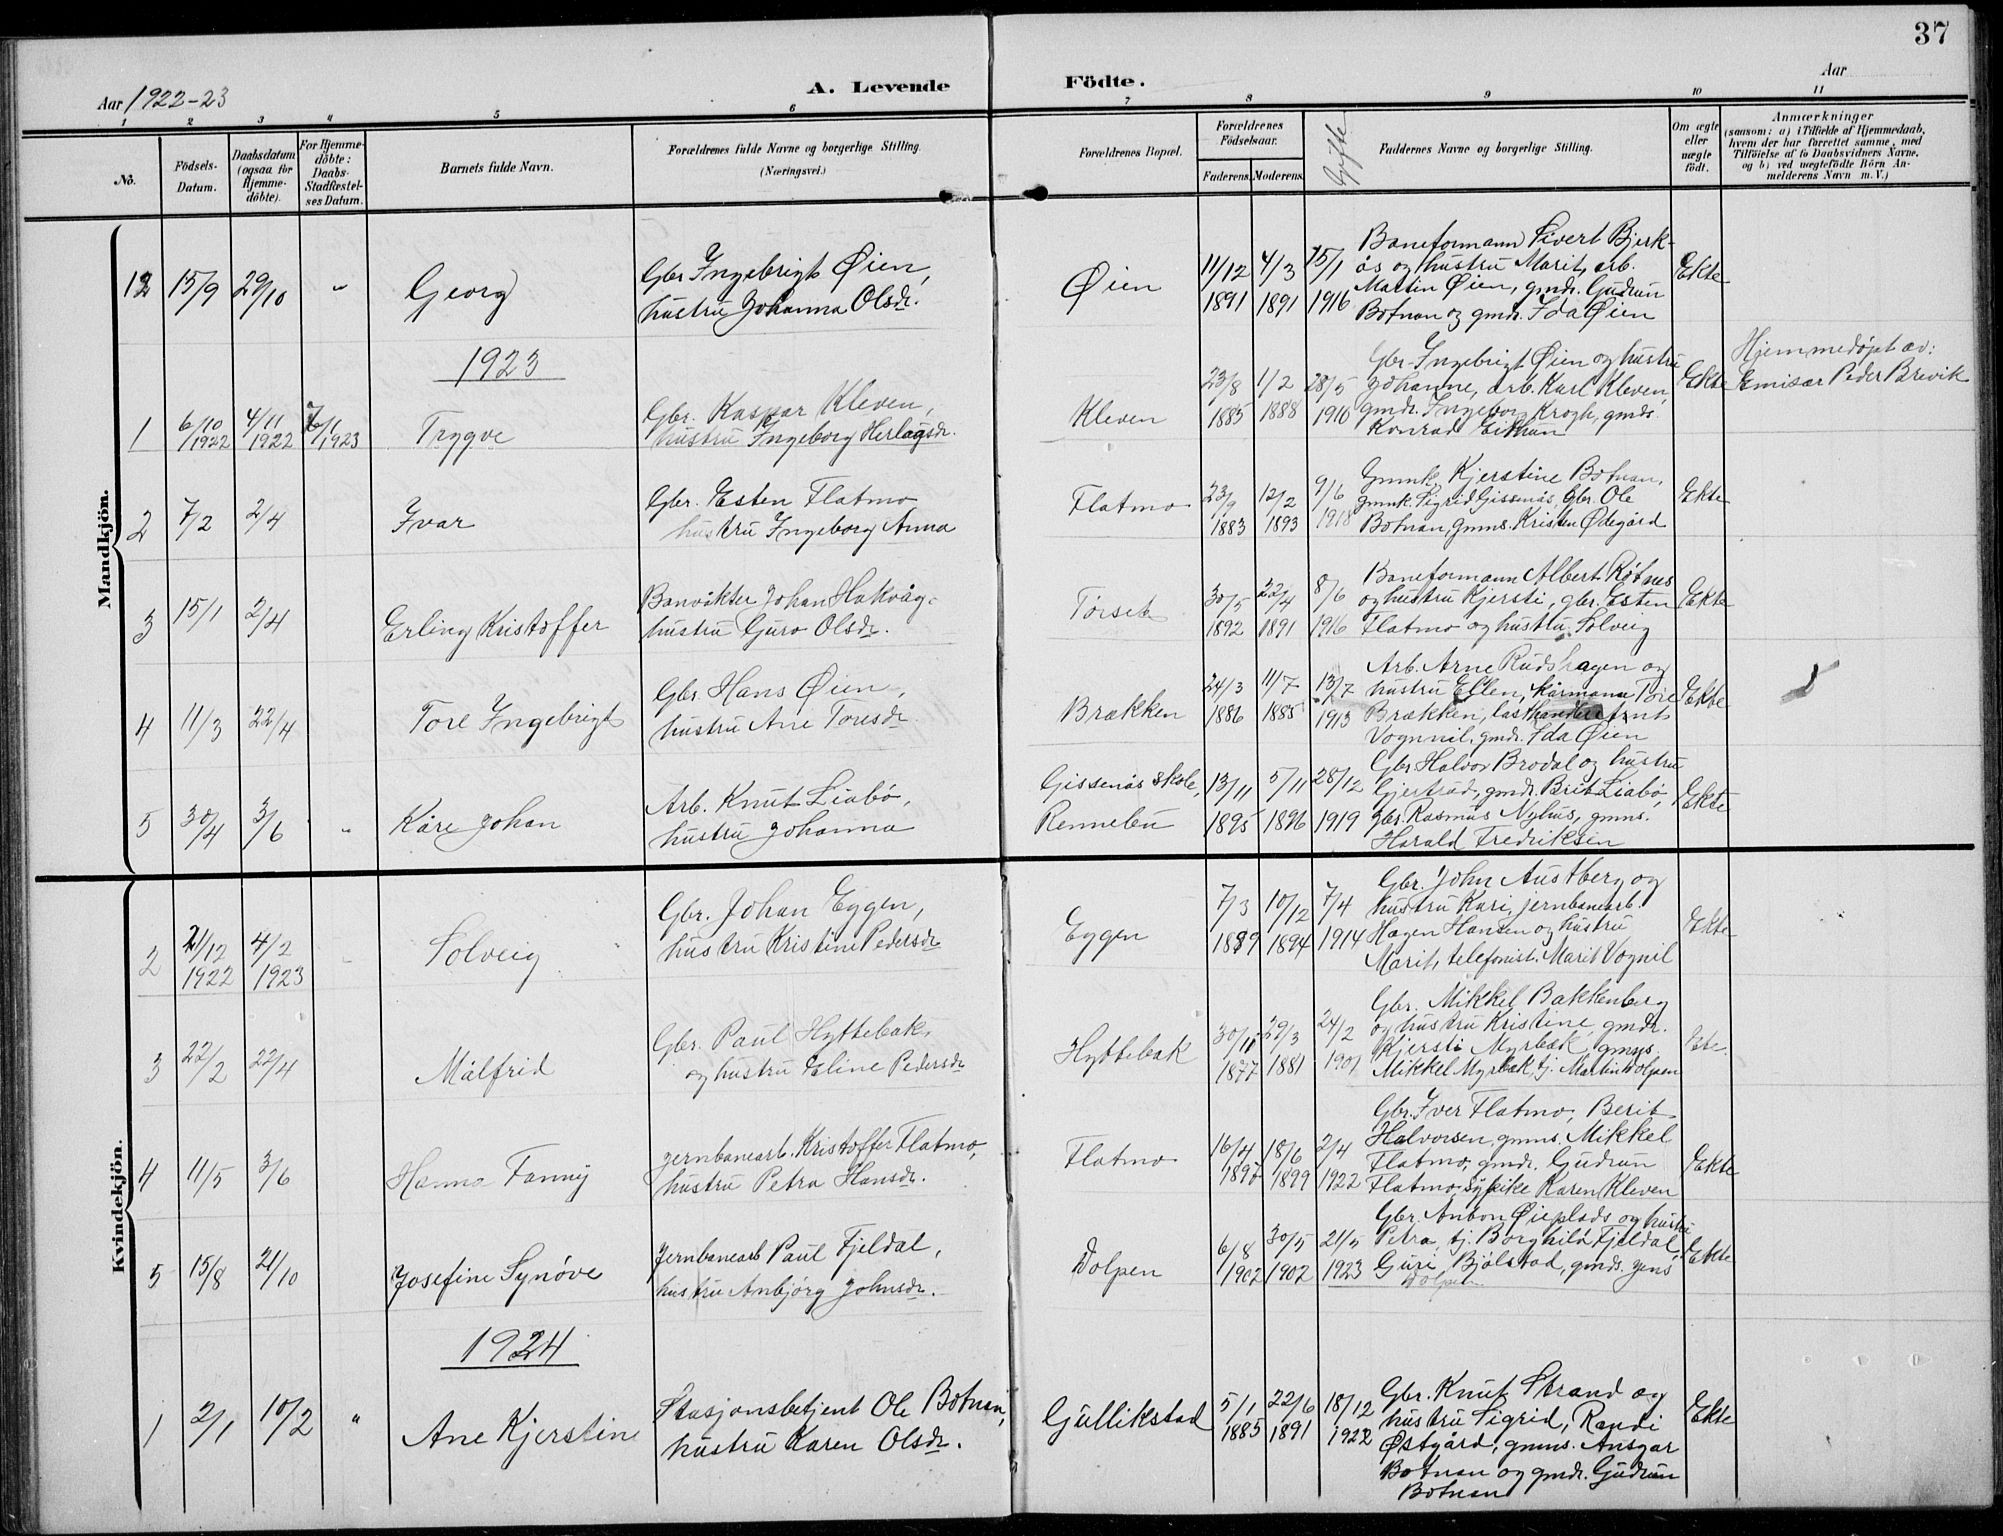 37
Aar 1922-23
A. Levende Födte.
Aar
1 2 3 4 5 6 7 8 9 10 11
No.
Födsels-Datum.
Daabsdatum (ogsaa for Hjemmedöbte).
For Hjemmedöbte: Daabs-Stadfæstelses Datum.
Barnets fulde Navn.
Forældrenes fulde Navne og borgerlige Stilling.
(Næringsvei.)
Forældrenes Bopæl.
Forældrenes Födselsaar.
Faderens. Moderens.
Gifte
Faddernes Navne og borgerlige Stilling.
Om ægte eller uægte födt.
Anmærkninger
(saasom: a) i Tilfælde af Hjemmedaab,
hvem der har forrettet samme, med
Tilföielse af to Daabsvidners Navne,
og b) ved uægtefödte Börn An-
melderens Navn m. V.)
Mandkjön.
12 15/9 29/10 " Georg
Gbr Ingebrigt Øien,
hustru Johanna Olsdr.
Øien
11/12 1891 4/3 1891 15/1 1916
Baneformann Sivert Bjerk-
ås og hustru Marit, arb.
Martin Øien, gmdr. Gudrun
Botnan og gmdr. Ida Øien
Ekte
1923
1 6/10 1922 4/11 1922 7/1 1923 Trygve
Gbr. Kaspar Kleven,
hustru Ingeborg Herlagsdr.
Kleven
23/8 1885 1/2 1888 28/5 1910
Gbr. Ingebrigt Øien og hustru
Johanne, arb. Karl Kleven,
gmdr. Ingeborg Krogh, gmds.
Konrad Eithun
Ekte
Hjemmedøpt av:
Emisær Peder Brevik
2 7/2 2/4 Ivar
Gbr. Esten Flatmo
hustru Ingeborg Anna
Flatmo
23/9 1883 12/2 1893 9/6 1918
Gmmk. Kjerstine Botnan,
gmmk. Sigrid Gissenås, Gbr. Ole
Botnan, gmms. Kristen Ødegård
Ekte
3 15/1 2/4 Erling Kristoffer
Banvåkter Johan Hakvåg,
hustru Guro Olsdr.
Torset
30/5 1892 22/4 1891 8/6 1916
Baneformann Albert Røtnes
og hustru Kjersti, gbr. Esten
Flatmo og hustru Solveig
Ekte
4 11/3 22/4 Tore Ingebrigt
Gbr. Hans Øien,
hustru Ane Toresdr.
Brækken
24/3 1886 11/7 1885 13/7 1913
Arb. Arne Rudshagen og
hustru Ellen, kårmann Tore
Brækken, lasthandler Arnt
Vognnil, gmdr. Ida Øien
Ekte
5 30/4 3/6 " Kåre Johan
Arb. Knut Liabø,
hustru Johanna
Gissenås skole,
Rennebu
13/11 1895 5/11 1896 28/12 1919
Gbr. Halvor Brodal og hustru
Gjertrud, gmdr. Brit Liabø,
gbr. Rasmus Nyhus, gmms.
Harald Fredriksen
Ekte
Kvindekjön.
2 21/12 1922 4/2 1923 Solveig
Gbr. Johan Eggen,
hustru Kristine Pedersdr
Eggen
7/3 1889 10/12 1894 7/4 1914
Gbr. John Austberg og
hustru Kari, jernbanearb.
Hagen Hansen og hustru
Marit, telefonist. Marit Vognil
Ekte
3 22/2 22/4 Målfrid
Gbr. Paul Hyttebak,
og hustru Eline Pedersdr
Hyttebak
30/11 1877 29/3 1881 24/2 1901
Gbr. Mikkel Bakkenberg
og hustru Kristine, gmdr.
Kjersti Myrbæk, gmys.
Mikkel Myrbæk, tj. Martin Dolpen
4 11/5 3/6 Hanna Fanny
jernbanearb. Kristoffer Flatmo,
hustru Petra Hansdr.
Flatmo
16/4 1897 18/6 1899 2/4 1922
Gbr. Iver Flatmo, Berit
Halvorsen, gmms. Mikkel
Flatmo, gmdr. Gudrun
Flatmo, sypike Karen Kleven
Ekte
5 15/8 21/10 Josefine Synøve
Jernbanearb Paul Fjeldal,
hustru Anbjørg Johnsdr.
Dolpen
6/8 1902 30/5 1902 21/5 1923
Gbr. Anton Øieplads og hustru
Petra, tj. Borghild Fjeldal,
Guri Bjølstad, gmds. Jens
Dolpen
Ekte
1924
1 2/1 10/2 " Ane Kjerstine
Stasjonsbetjent Ole Botnan,
hustru Karen Olsdr.
Gullikstad
5/1 1885 22/6 1891 18/12 1922
Gbr. Knut Strand og
hustru Sigrid, Randi
Østgård, gmms. Ansgar
Botnan og gmdr. Gudrun
Botnan
Ekte